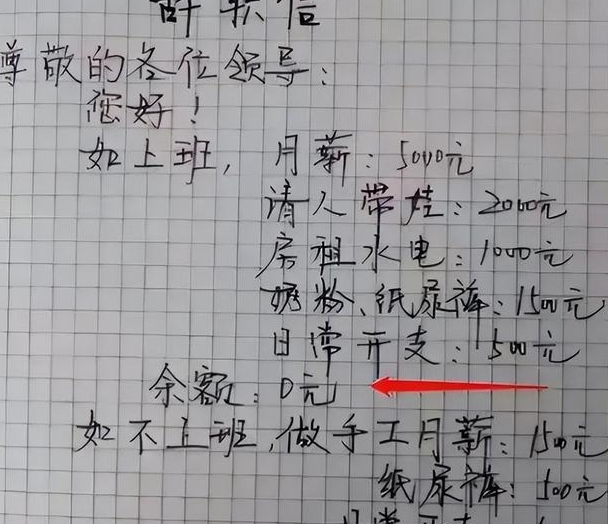 辞职信
尊敬的各位领导:
您好!
如上班,月薪:5000元
请人带娃:2000元
房租水电:1000元
奶粉、纸尿裤:1500元
日常开支:500元
余额:0元
如不上班,做手工月薪:1500元
纸尿裤:500元
日常开支